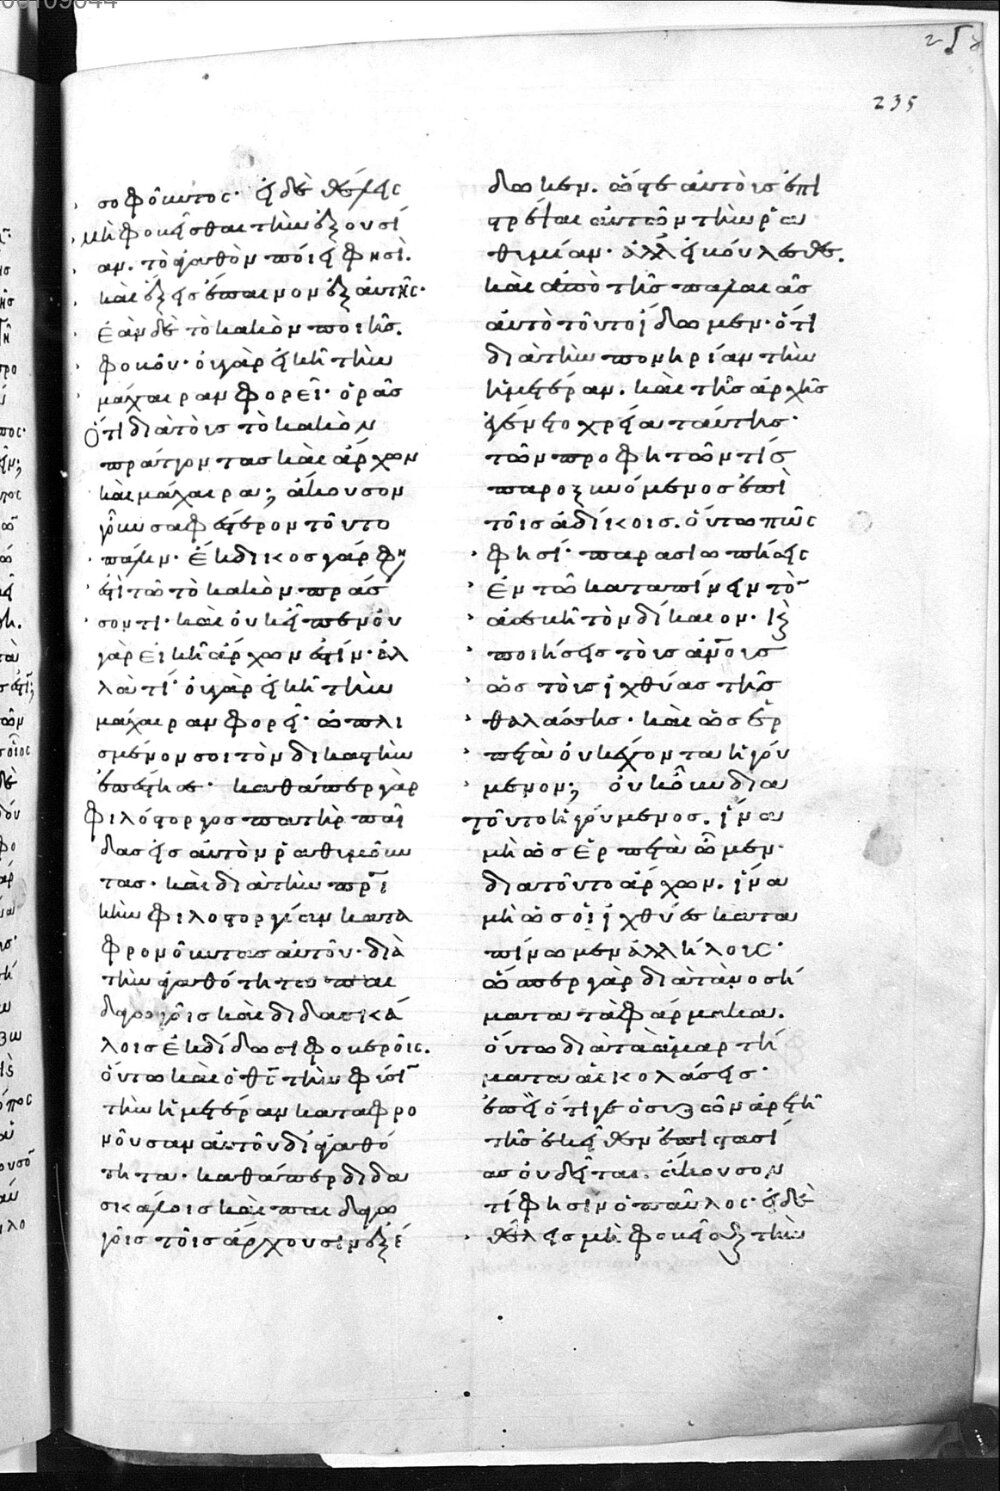 235
σοφοῦντος· εἰ δὲ θέλεις
μὴ φοβεῖσθαι τὴν ἐξουσί
αν. τὸ ἀγαθὸν ποίει φησὶ.
καὶ ἕξεις ἔπαινον ἐξ αὐτῆς·
ἐὰν δὲ τὸ κακὸν ποιῆς.
φοβοῦ· οὐ γὰρ εἰκῆ τὴν
μάχαιραν φορεῖ· ὁρᾶς
ὅτι διὰ τοὺς τὸ κακὸν
πράττοντας καὶ ἄρχων
καὶ μάχαιρα; ἄκουσον
γοῦν σαφέστερον τοῦτο
πάλιν. ἔκδικος γάρ φη
ἐστὶ τῶ τὸ κακὸν πράσ
σοντι· καὶ οὐκ εἶπεν οὐ
γὰρ εἰκῆ ἄρχων ἐστίν· ἀλ
λὰ τί· οὐ γὰρ εἰκῆ τὴν
μάχαιραν φορεῖ· ὡπλι
σμένον σοι τὸν δικαστὴν
ἐπέστησε· καθάπερ γὰρ
φιλόστοργος πατὴρ παῖ
δας εἰς αὐτὸν ῥαθυμοῦν
τας· καὶ διὰ τὴν πρικὴν
φιλοστοργίαν κατα
φρονοῦντας αὐτοῦ· διὰ
τὴν ἀγαθότητα παι
δαγωγοῖς καὶ διδασκά
λοις ἐκδίδωσι φοβεροῖς.
οὕτω καὶ ὁ θς τὴν φύσιν
τὴν ἡμετέραν καταφρο
νοῦσαν αὐτοῦ δι' ἀγαθό
τητα· καθάπερ διδα
σκάλοις καὶ παιδαγω
γοῖς τοῖς ἄρχουσιν ἐξέ
δωκεν. ὥστε αὐτοὺς ἐπι
στρέψαι αὐτῶν τὴν ῥα
θυμίαν· ἀλλ' εἰ βούλεσθε.
καὶ ἀπὸ τῆς παλαιᾶς
αὐτὸ τοῦτο ἴδωμεν· ὅτι
διὰ τὴν πονηρίαν τὴν
ἡμετέραν. καὶ τῆς ἀρχῆς
ἐγένετο χρεία ταύτης·
τῶν προφητῶν τίς
παροξυνόμενος ἐπὶ
τοῖς ἀδίκοις. οὕτω πῶς
φησί· παρασιωπήσεις
ἐν τῶ καταπίνειν τὸν
ἀσεβῆ τὸν δίκαιον· καὶ
ποιήσεις τοὺς ἀνους
ὡς τοὺς ἰχθύας τῆς
θαλάσσης· καὶ ὡς ἑρ
πετὰ οὐκ ἔχοντα ἡγού
μενον; οὐκοῦν δια
τοῦτο ἡγούμενος. ἵνα
μὴ ὡς ἑρπετὰ ὦμεν·
δια τοῦτο ἄρχων. ἵνα
μὴ ὡς οἱ ἰχθύες κατα
πίνωμεν ἀλλήλους·
ὥσπερ γὰρ διὰ τὰ νοσή
ματα τὰ φάρμακα.
οὕτω διὰ τὰ ἁμαρτή
ματα αἱ κολάσεις·
ἐπεὶ ὅτι γε ὁ συζῶν ἀρετῆ
τῆς ἐκεῖθεν ἐπιστασί
ας οὐ δεῖται. ἄκουσον
τί φησιν ὁ παῦλος· εἰ δὲ
θέλεις μὴ φοβεῖσθαι τὴν